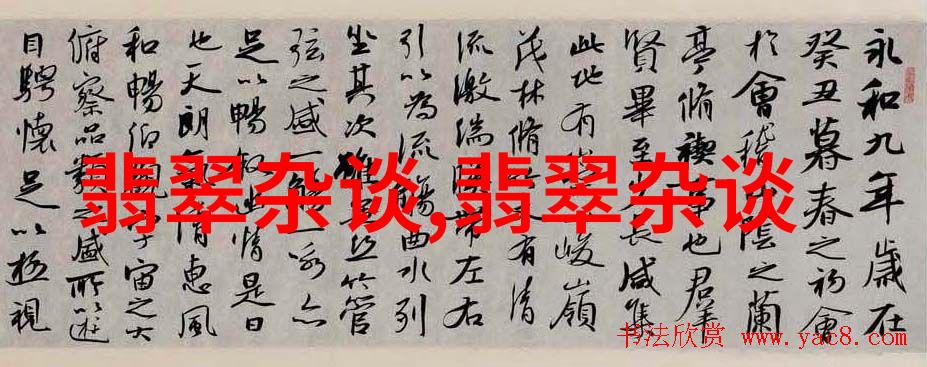 永和九年歳在
癸丑暮春之初會
於會稽山陰之蘭
亭脩禊事也羣
賢畢至少長咸集
此地有峻嶺
茂林脩有清
流激湍帶左右
引以為流觴曲水列
坐其次雖無絲竹管
弦之盛一觴一詠亦
足以暢叙幽情是日
也天朗氣清惠風
和暢仰觀宇宙之大
俯察品類之盛所以遊
目騁懷足以極視
翡翠杂谈,翡翠杂谈
书法欣赏 www.yac8.com